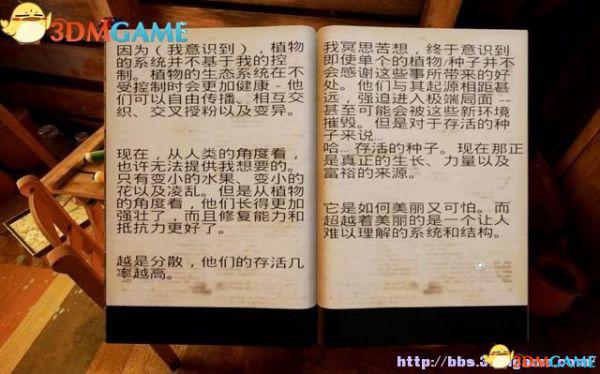 3DMGAME
因为(我意识到),植物
的系统并不基于我的控
制。植物的生态系统在不
受控制时会更加健康 - 他
们可以自由传播、相互交
织、交叉授粉以及变异。
现在,从人类的角度看,
也许无法提供我想要的。
只有变小的水果、变小的
花以及凌乱。但是从植物
的角度看,他们长得更加
强壮了,而且修复能力和
抵抗力更好了。
越是分散,他们的存活几
率越高。
我冥思苦想,终于意识到
即使单个的植物/种子并不
会感谢这些事所带来的好
处。他们与其起源相距甚
远,强迫进入极端局面 --
甚至可能会被这些新环境
摧毁。但是对于存活的种
子来说...
哈... 存活的种子。现在那正
是真正的生长、力量以及
富裕的来源。
它是如何美丽又可怕。而
超越着美丽的是一个让人
难以理解的系统和结构。
3DMGAME